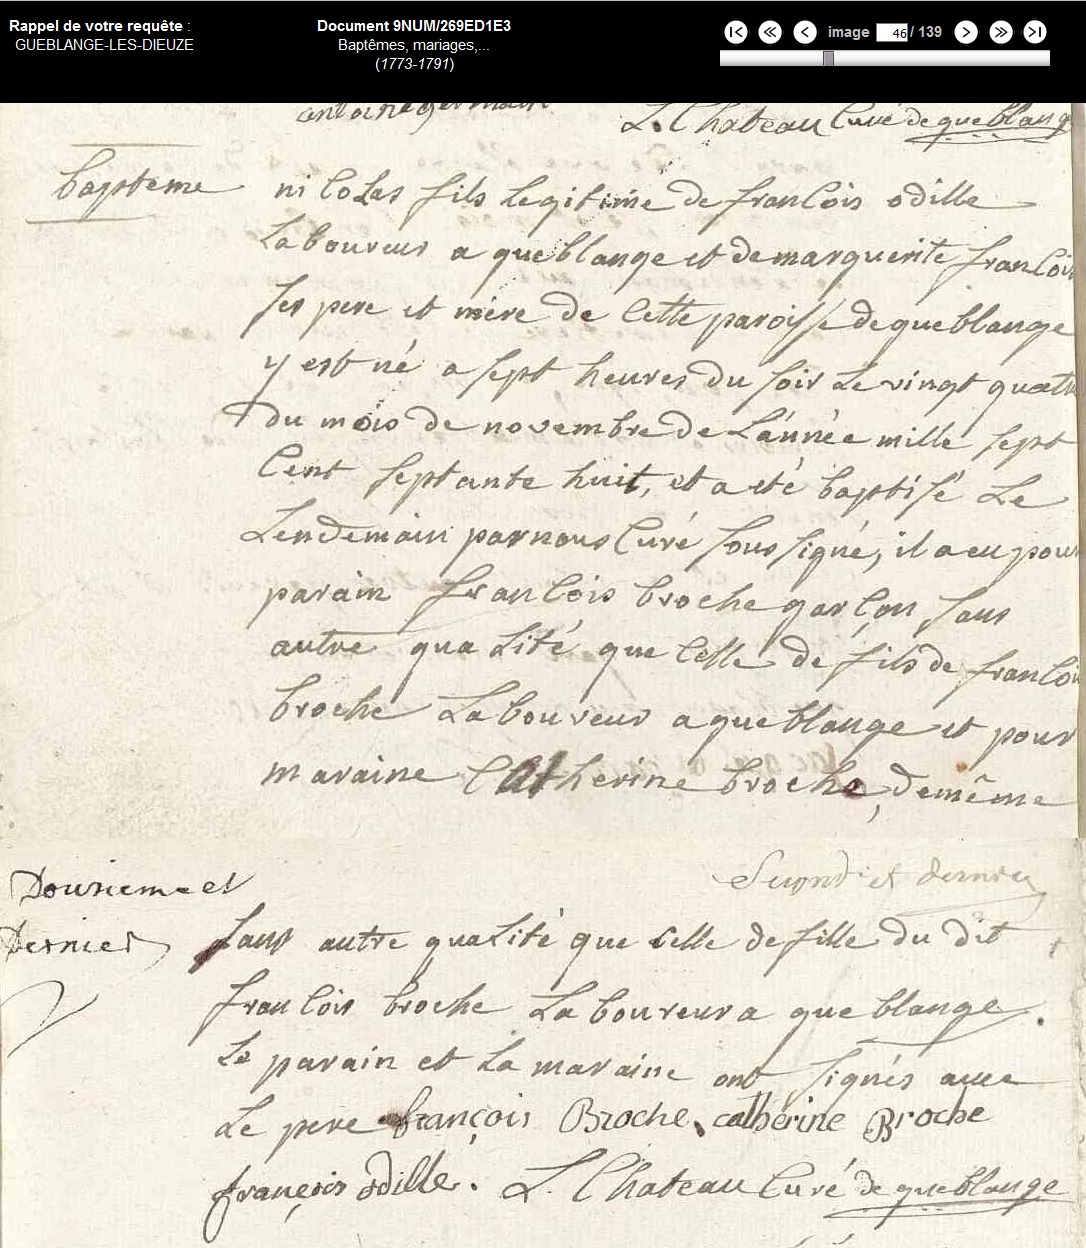 Rappel de votre requête :
GUEBLANGE-LES-DIEUZE
Document 9NUM/269ED1E3
Baptêmes, mariages,...
(1773-1791)
image 46 / 139
antoine germain
L. Chateau Curé de gueblange
bapteme
nicolas fils legitime de francois odille
laboureur a gueblange et de marguerite francois
ses pere et mère de cette paroisse de gueblange
y est né a sept heures du soir le vingt quatre
du mois de novembre de l'année mille sept
cent septante huit, et a eté baptisé le
lendemain par nous curé sous signé, il a eu pour
parain francois broche garcon sans
autre qualité que celle de fils de francois
broche laboureur a gueblange et pour
maraine Catherine broche, de même
Second et dernier
Dousiem et
Dernier
sans autre qualité que celle de fille du dit
francois broche laboureur a gueblange.
Le parain et la maraine ont signés avec
le pere françois Broche, catherine Broche
françois odille. L. Chateau Curé de gueblange